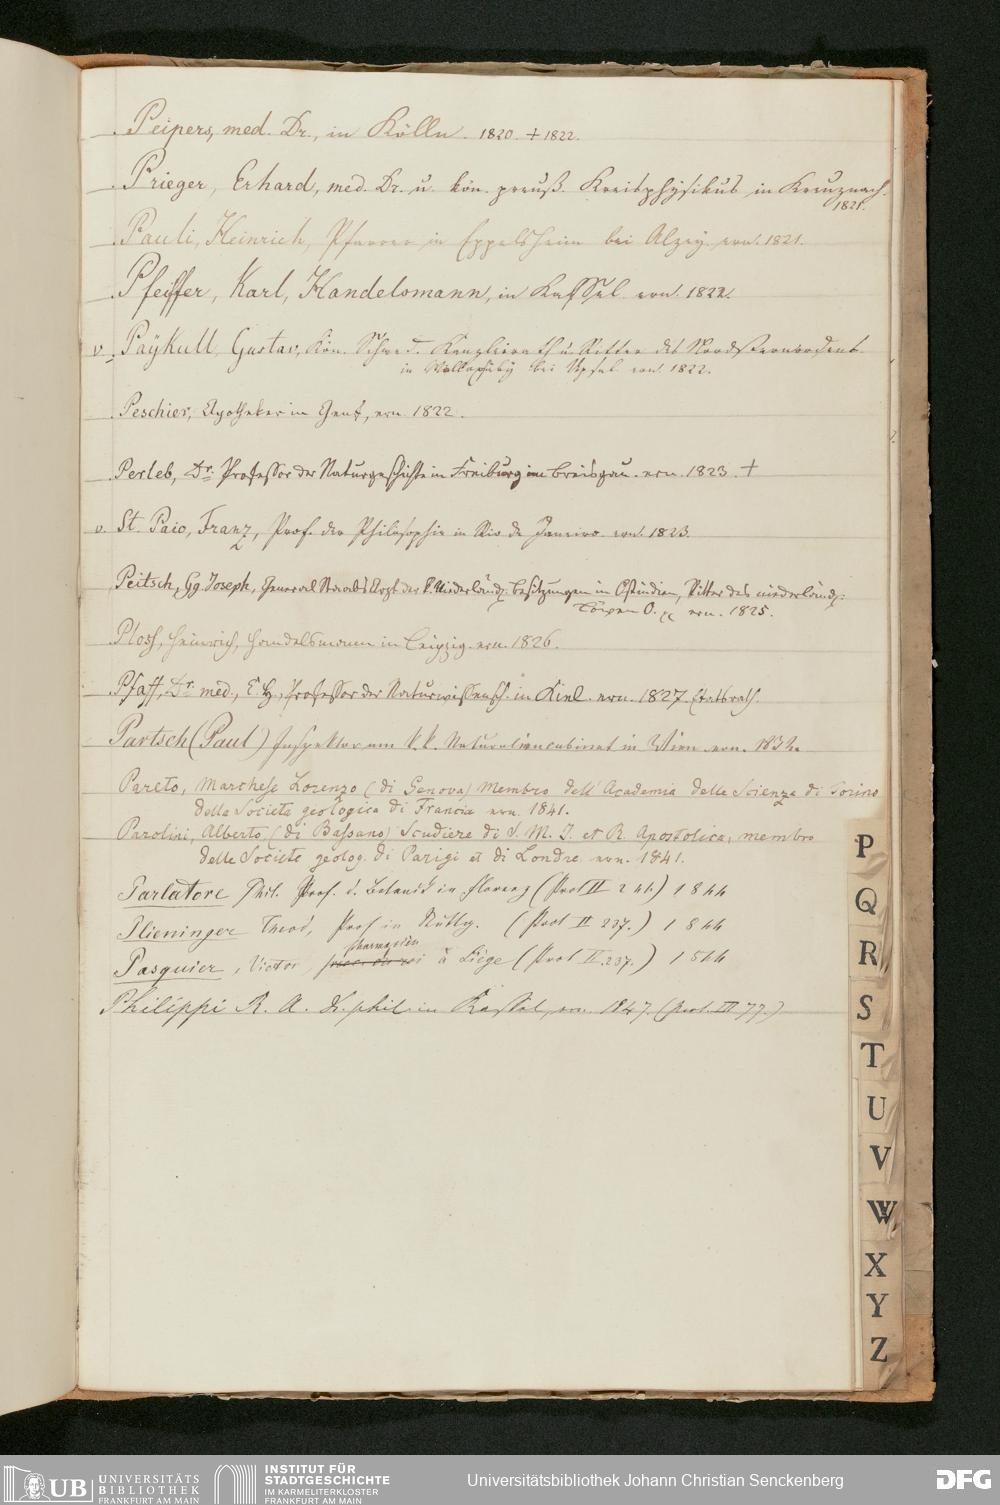 Peipers, med. Dr., in Kölln. 1820. + 1822.
Prieger, Erhard, med. Dr. u. kön. preuß. Kreisphysikus in Kreuznach.
1821.
Pauli, Heinrich, Pfarrer in Eppelsheim bei Alzey. ern. 1821.
Pfeiffer, Karl, Handelsmann, in Kassel. ern. 1822.
v. Paÿkull Gustav, Kön. Schwed. Kanzleirath u. Ritter des Nordsternordens
in bei Upsal ern. 1822.
Peschier, Apotheker in Genf, ern. 1822.
Perleb, Dr. Professor der Naturgeschichte in Freiburg im Breisgau. ern. 1823. +
v. St. Paio, Franz, Prof. der Philosophie in Rio de Janeiro. ern. 1823.
Peitsch, Gg. Joseph, General Staabs Arzt der K. Niederländ. Besitzungen in Ostindien, Ritter des niederländ.
Löwen O. ern. 1825.
Ploss, Heinrich, Handelsmann in Leipzig. ern. 1826.
Pfaff, Dr. med., C. H., Professor der Naturwissensch. in Kiel. ern. 1827. Etatsrath.
Partsch (Paul) Inspektor am k. k. Naturaliencabinet in Wien. ern. 1832.
Pareto, Marchese Lorenzo (di Genova) Membro dell' Academia delle Scienze di Torino
della Societa geologica di Francia ern. 1841.
Parolini, Alberto, (di Bassano) Scudiere di S. M. I. et R. Apostolica, membro
delle Societe geolog. di Parigi et di Londre ern. 1841.
Parlatore Phil. Prof. d. Botanik in Florenz (Prot II 241.) 1844
Plieninger Theod, Prof in Stuttg. (Prot II 237.) 1844
pharmacien
Pasquier, Victor à Liège (Prot II. 237.) 1844
Philippi R. A. Dr. phil. in Kassel, ern. 1847. (Prot. III 77.)
P
Q
R
S
T
U
V
W
X
Y
Z
UB UNIVERSITÄTS
BIBLIOTHEK
FRANKFURT AM MAIN
INSTITUT FÜR
STADTGESCHICHTE
IM KARMELITERKLOSTER
FRANKFURT AM MAIN
Universitätsbibliothek Johann Christian Senckenberg
DFG